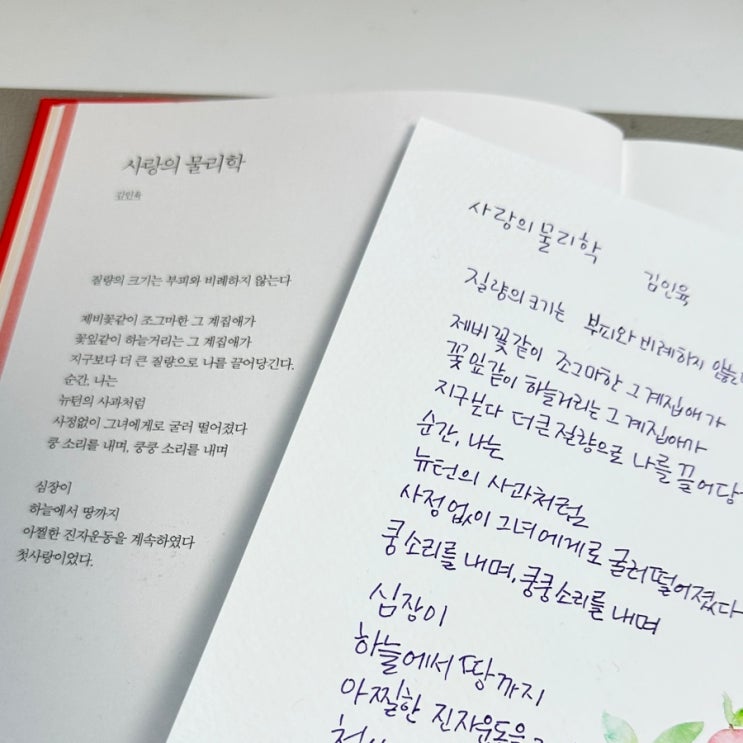 사랑의 물리학
김인육
질량의 크기는 부피와 비례하지 않는다
제비꽃같이 조그마한 그 계집애가
꽃잎같이 하늘거리는 그 계집애가
지구보다 더 큰 질량으로 나를 끌어당긴다.
순간, 나는
뉴턴의 사과처럼
사정없이 그녀에게로 굴러 떨어졌다
쿵 소리를 내며, 쿵쿵 소리를 내며
심장이
하늘에서 땅까지
아찔한 진자운동을 계속하였다
첫사랑이었다.
사랑의 물리학
김인육
질량의 크기는 부피와 비례하지 않는
제비꽃같이 조그마한 그 계집애가
꽃잎같이 하늘거리는 그 계집애가
지구보다 더 큰 질량으로 나를 끌어당
순간, 나는
뉴턴의 사과처럼
사정없이 그녀에게로 굴러 떨어졌다
쿵 소리를 내며, 쿵쿵 소리를 내며
심장이
하늘에서 땅까지
아찔한 진자운동을